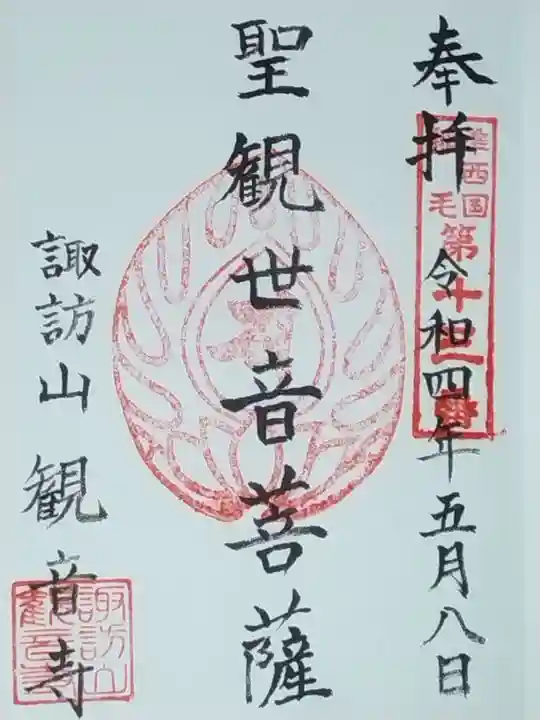 奉拝
令和四年五月八日
聖観世音菩薩
諏訪山観音寺
準西国
毛
第十三番
諏訪山
観音寺